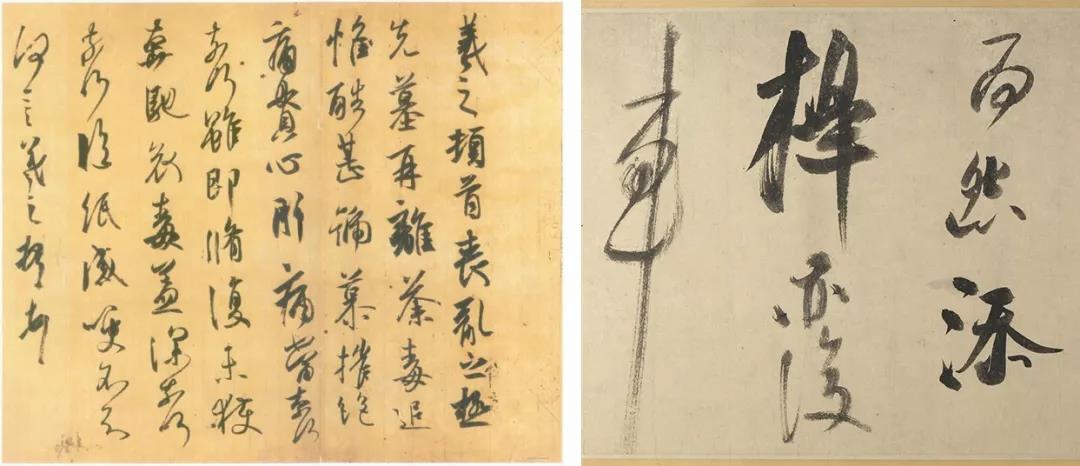 羲之頓首喪亂之極
先墓再離荼毒追
惟酷甚號慕摧絕
痛貫心肝痛當柰何
柰何雖即脩復未獲
奔馳哀毒益深柰何
柰何臨紙感哽不知
何言羲之頓首頓首
而怨添
槔亦復
車